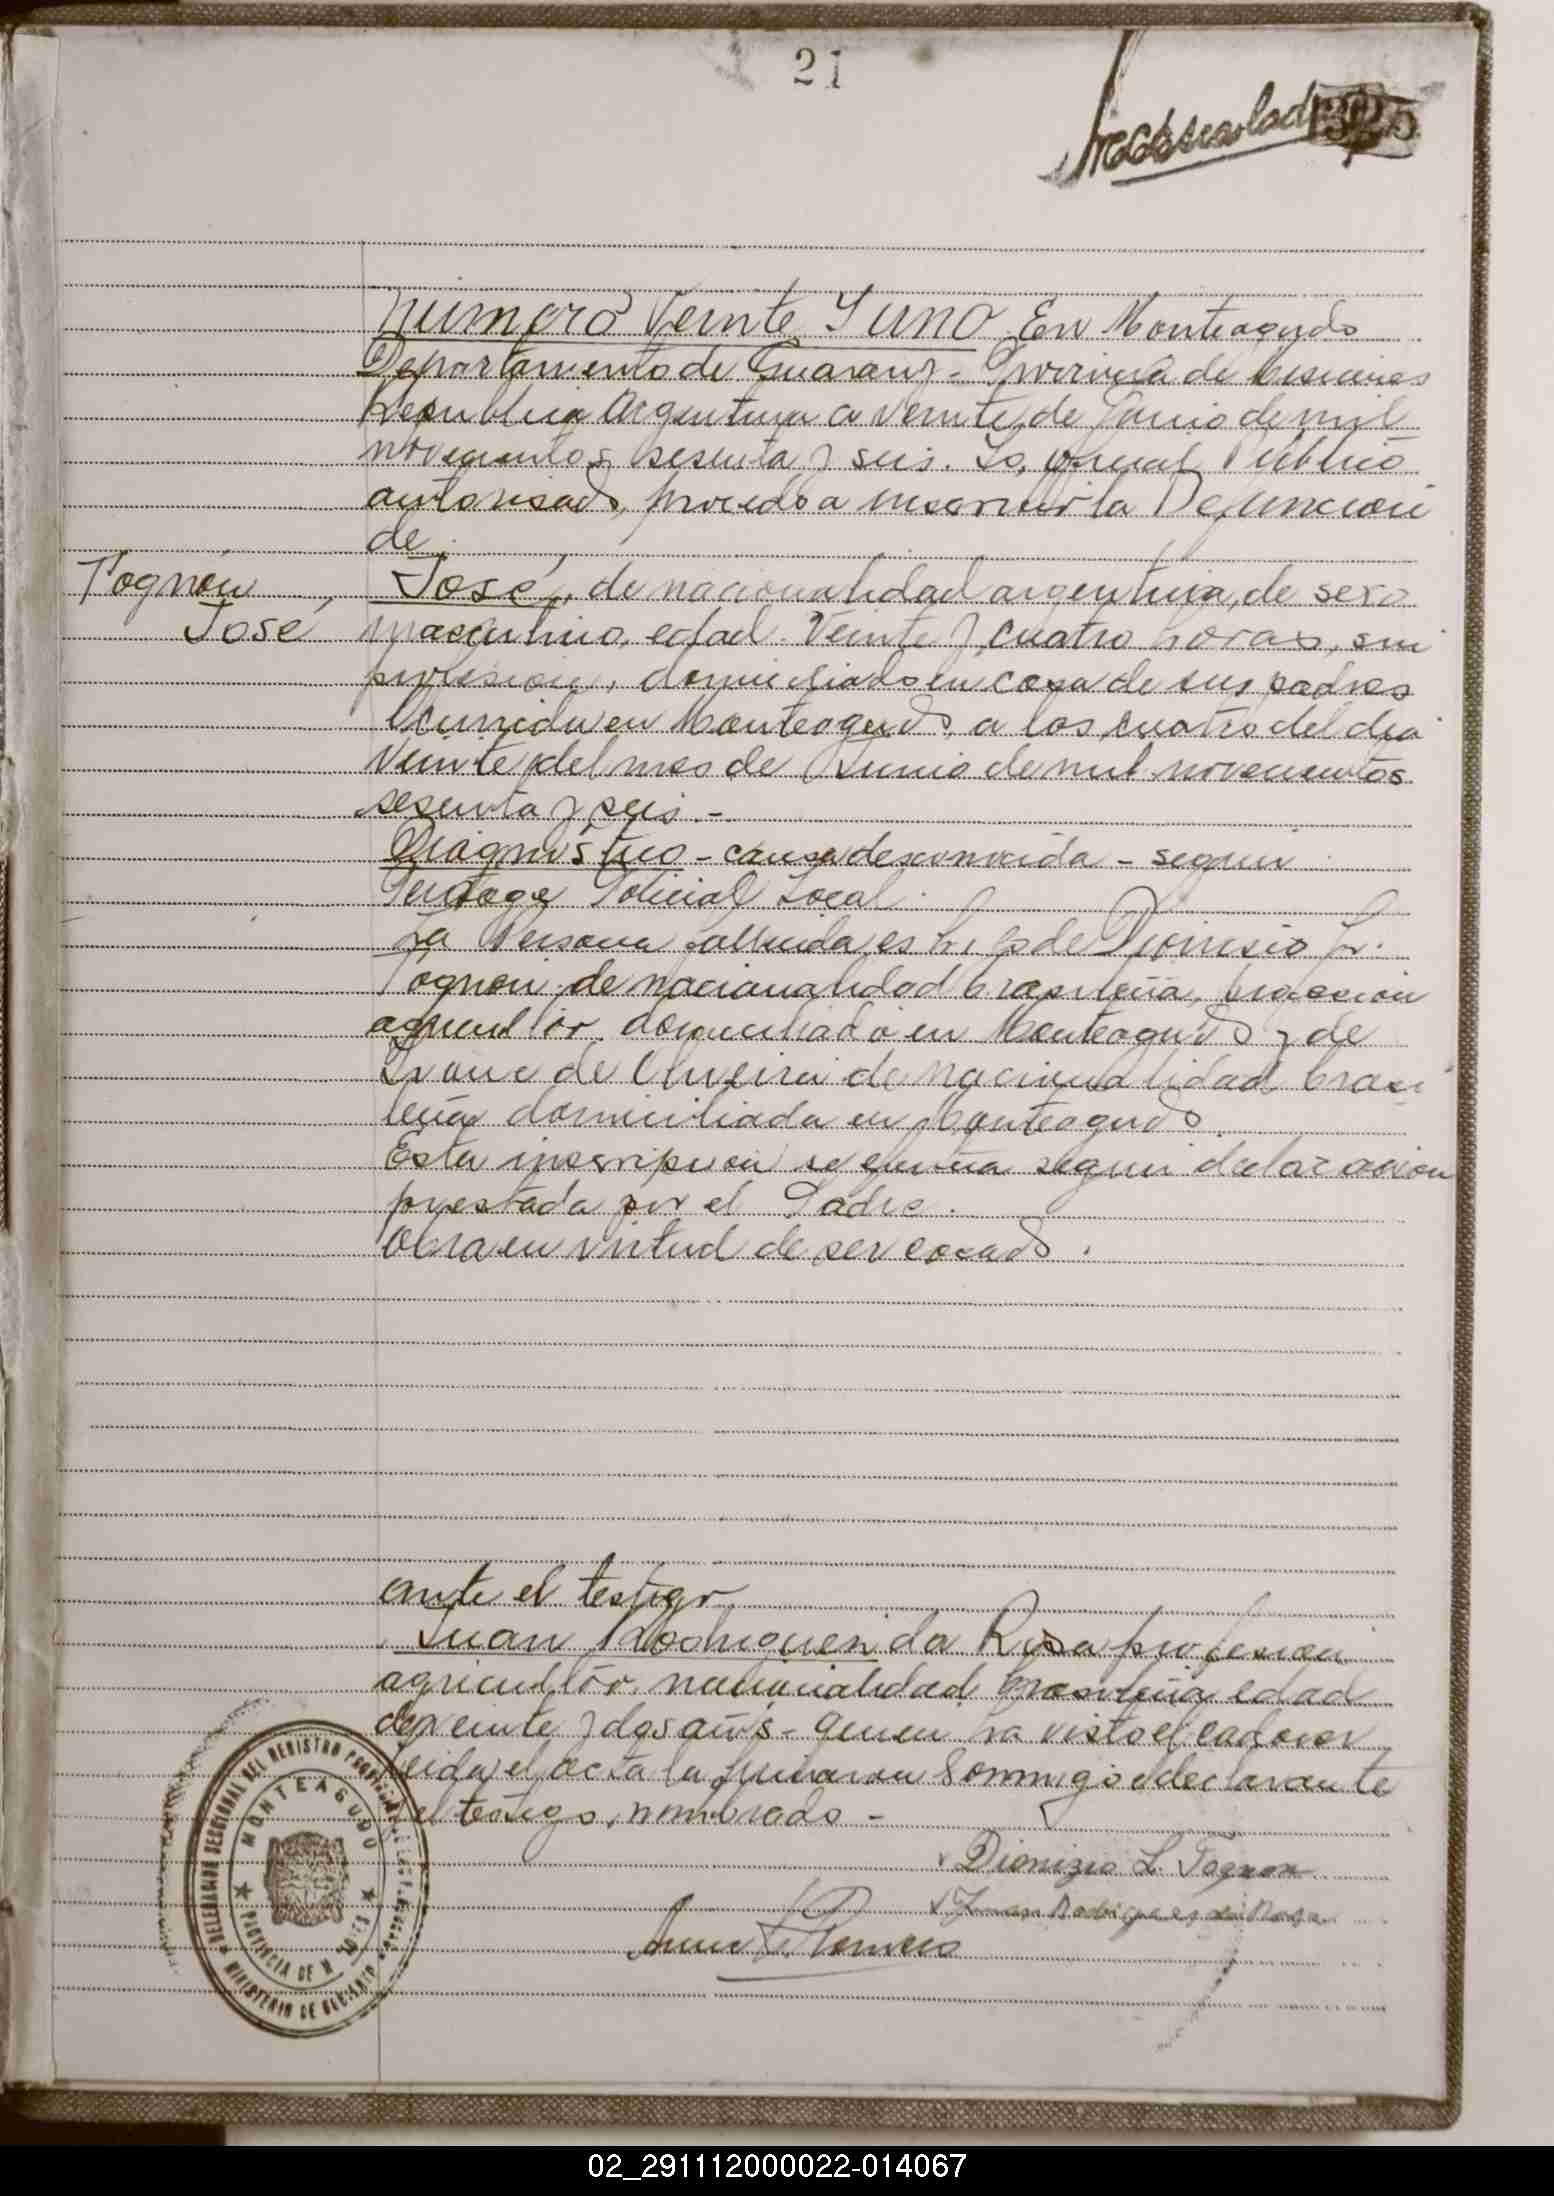 21
1325
Numero Veinte y uno En Monteagudo
Departamento de Guarani - Provincia de Misiones
Republica Argentina a veinte de Junio de mil
novecientos sesenta y seis. Yo, oficial Publico
autorisado, procedo a inscribir la Defuncion
de
Tognon,
José
José, de nacionalidad argentina, de sexo
masculino, edad Veinte y cuatro horas, sin
profesion, domiciliado en casa de sus padres
Ocurrida en Monteagudo, a los cuatro del dia
Veinte del mes de Junio de mil novecientos
sesenta y seis.-
Diagnostico - causa desconocida - segun
Policial Local.
La Persona fallecida es hijo de Dionisio L.
Tognon de nacionalidad brasileña, profesion
agricultor, domiciliado en Monteagudo y de
de Oliveira de nacionalidad brasi
leña domiciliada en Monteagudo.
Esta inscripcion se efectua segun declaracion
prestada por el Padre.
Obra en virtud de ser casado.
ante el testigo
Juan Rodrigues da Rosa profesion
agricultor nacionalidad brasileña edad
de veinte y dos años - quien ha visto el cadaver
Leida el acta la firmaron conmigo el declarante
y el testigo, nombrado -
Dionizio L. Tognon
Juan Rodrigues da Rosa
DELEGACION SECCIONAL DEL REGISTRO PROVINCIAL DE LAS PERSONAS
MONTEAGUDO
PROVINCIA DE MISIONES
MINISTERIO DE GOBIERNO
02_291112000022-014067